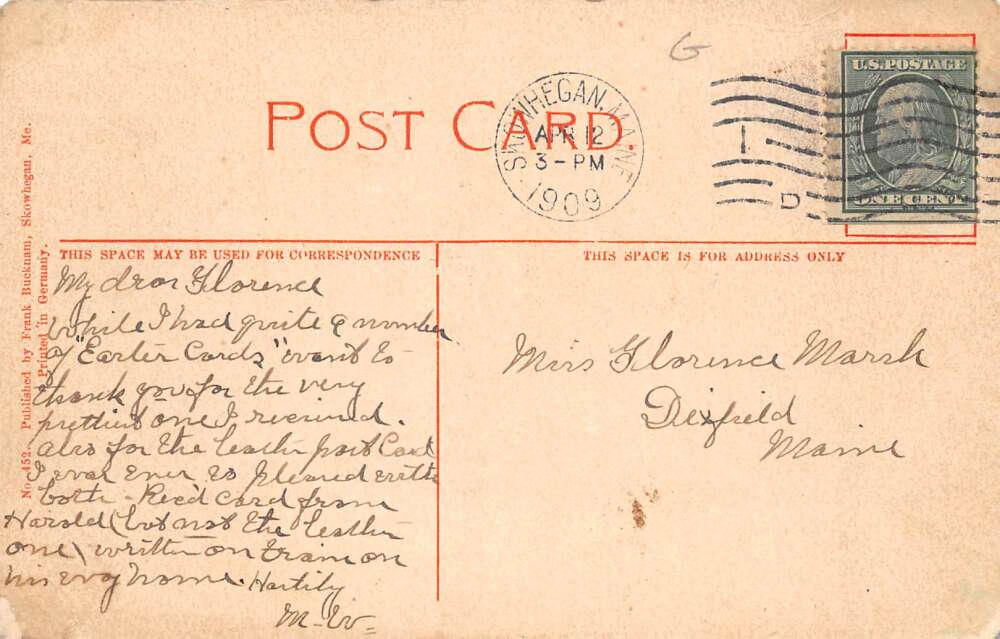 G
U.S. POSTAGE
ONE CENT
POST CARD
SKOWHEGAN, MAINE
APR 12
3-PM
1909
1
D
No. 452. Published by Frank Bucknam, Skowhegan, Me.
Printed in Germany.
THIS SPACE MAY BE USED FOR CORRESPONDENCE
My dear Florence
While I had quite a number
of "Easter Cards," want to
thank you for the very
prettiest one I received.
also for the leather post Card
I was ever so pleased with
both - Rec'd card from
Harold (but not the leather
one) written on train on
his way home. Hastily
M- W-
THIS SPACE IS FOR ADDRESS ONLY
Miss Florence Marsh
Dixfield
Maine